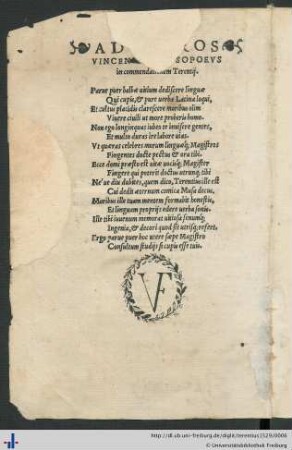 AD
VINCEN OPSOPOEVS
in commendationem Terentij.
Parue puer balbæ uitium dediscere linguæ
Qui cupis, & pure uerba Latina loqui,
Et cultus placidis clarescere moribus olim
Viuere ciuili ut more proberis homo.
Non ego longinquas iubeo te inuisere gentes,
Et multo duras ire labore uias.
Vt quæras celebres morum linguæq; Magistros
Fingentes docte pectus & ora tibi.
Ecce domi præsto est uitæ uocisq; Magister
Fingere qui poterit doctus utrunq; tibi
Ne'ue diu dubites, quem dico, Terentius ille est
Cui dedit æternum comica Musa decus,
Moribus ille tuam mentem formabit honestis,
Et linguam proprijs edere uerba sonis.
Ille tibi iuuenum memorat uitiosa senumq;
Ingenia, & deceat quod sit utrisq; refert.
Ergo parue puer hoc utere sæpe Magistro
Consultum studijs si cupis esse tuis.
VF
http://dl.ub.uni-freiburg.de/diglit/terentius1529/0006
© Universitätsbibliothek Freiburg